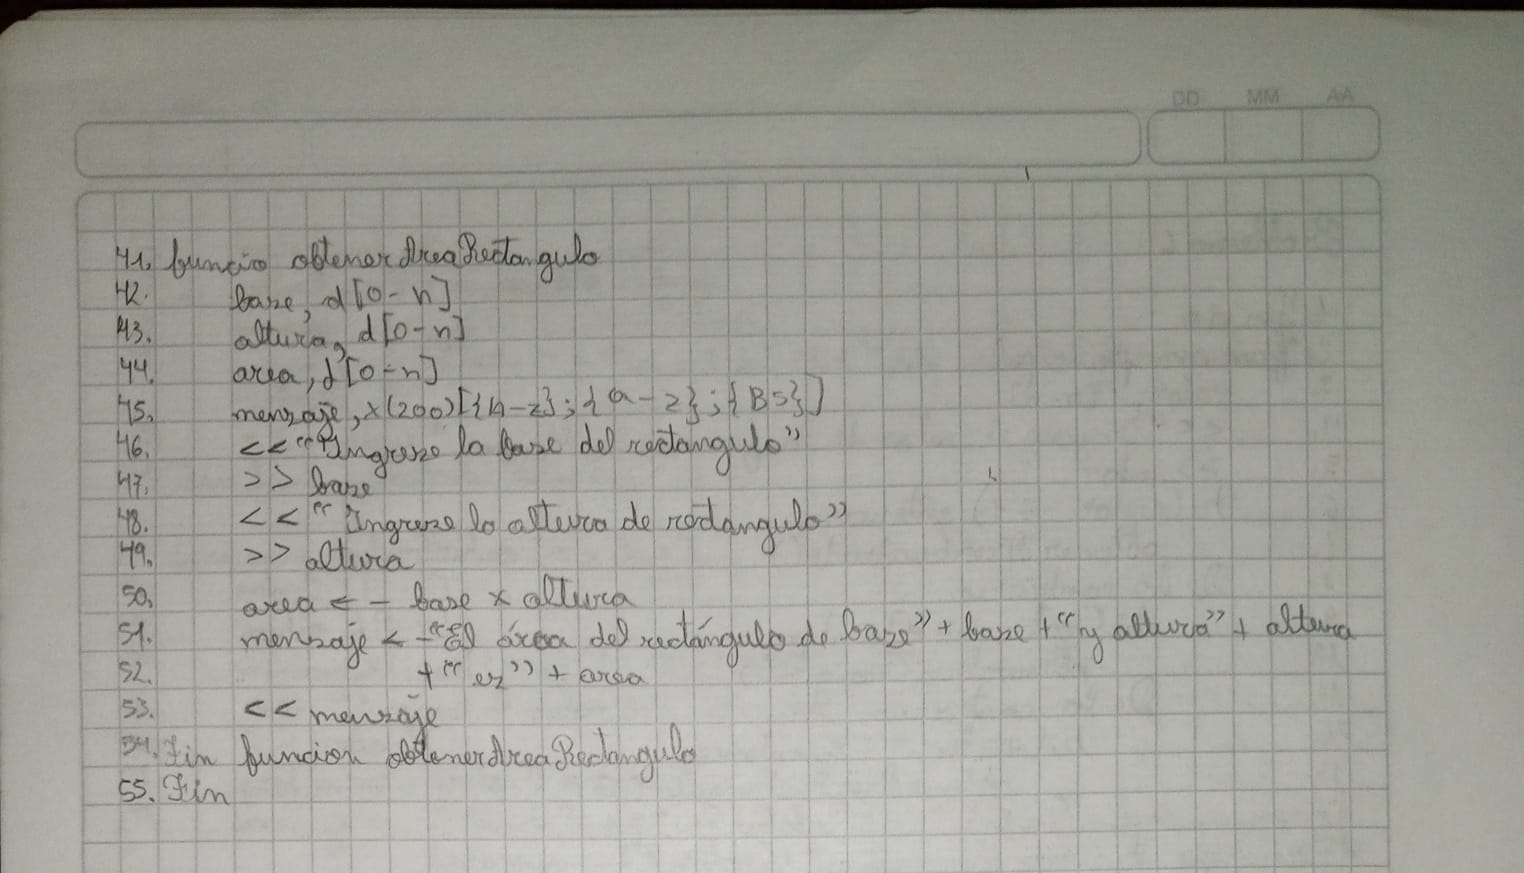 DD MM AA
41. funcion obtenerAreaRectangulo
42. base, d[0-n]
43. altura, d[0-n]
44. area, d[0-n]
45. mensaje, x(200)[{A-z};{a-z};{BS}]
46. <<"Ingrese la base del rectángulo"
47. >> base
48. <<"Ingrese la altura de rectangulo"
49. >> altura
50. area <- base x altura
51. mensaje <- "El área del rectángulo de base" + base + "y altura" + altura
52. + "es" + area
53. << mensaje
54. Fin funcion obtenerAreaRectangulo
55. Fin